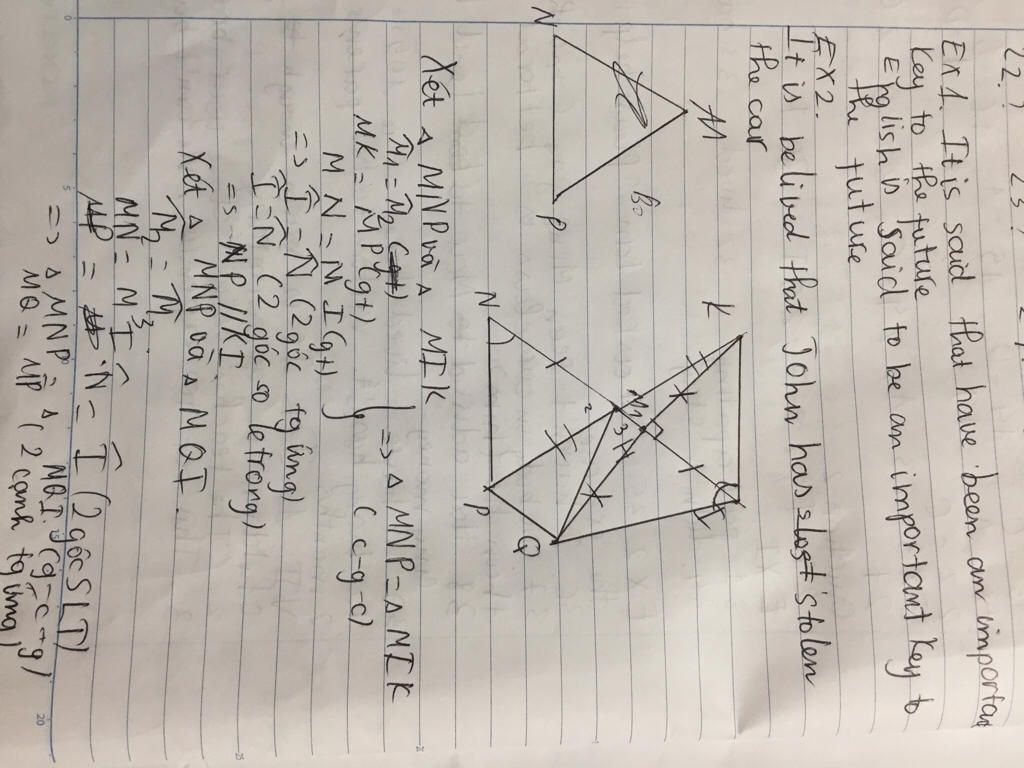 22? 23?
Ex1. It is said that have been an importan
Key to the future
English is said to be an important key to
the future
EX2.
It is belived that John has stolen
the car
N
M
P
K
N
M1
2
3
I
P
Q
Xét Δ MNP và Δ MIK
M̂1 = M̂2
MK = MP (gt)
MN = MI (gt)
=> Δ MNP = Δ MIK
(c-g-c)
=> Î = N̂ (2 góc tg ứng)
Î = N̂ (2 góc so le trong)
=> NP // KI
Xét Δ MNP và Δ MQI
M̂2 = M̂3
MN = MI
N̂ = Î (2 góc SLT)
=> Δ MNP = Δ MQI (g-c-g)
MQ = MP (2 cạnh tg ứng)
5
20